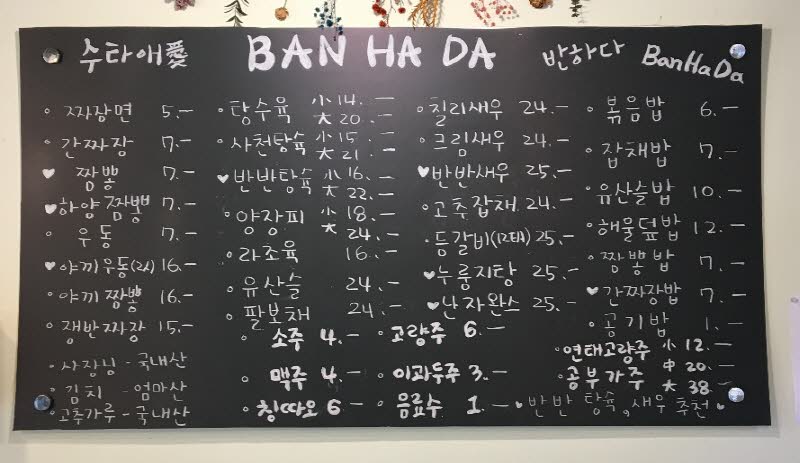 수타애愛 BAN HA DA 반하다 BanHaDa
짜장면 5.-
간짜장 7.-
♥ 짬뽕 7.-
♥ 하양짬뽕 7.-
우동 7.-
♥ 야끼우동(2人) 16.-
야끼짬뽕 16.-
쟁반짜장 15.-
사장님 - 국내산
김치 - 엄마산
고추가루 - 국내산
탕수육 小 14.-
大 20.-
사천탕슉 小 15.-
大 21.-
♥ 반반탕슉 小 16.-
大 22.-
양장피 小 18.-
大 24.-
라조육 16.-
유산슬 24.-
팔보채 24.-
칠리새우 24.-
크림새우 24.-
♥ 반반새우 25.-
고추잡채 24.-
등갈비(12EA) 25.-
♥ 누룽지탕 25.-
♥ 난자완스 25.-
볶음밥 6.-
잡채밥 7.-
유산슬밥 10.-
해물덮밥 12.-
짬뽕밥 7.-
♥ 간짜장밥 7.-
공기밥 1.-
소주 4.-
맥주 4.-
칭따오 6-
고량주 6.-
이과두주 3.-
음료수 1.-
연태고량주 小 12.-
中 20.-
공부가주 大 38.-
♥ 반반 탕슉, 새우 추천 ♥